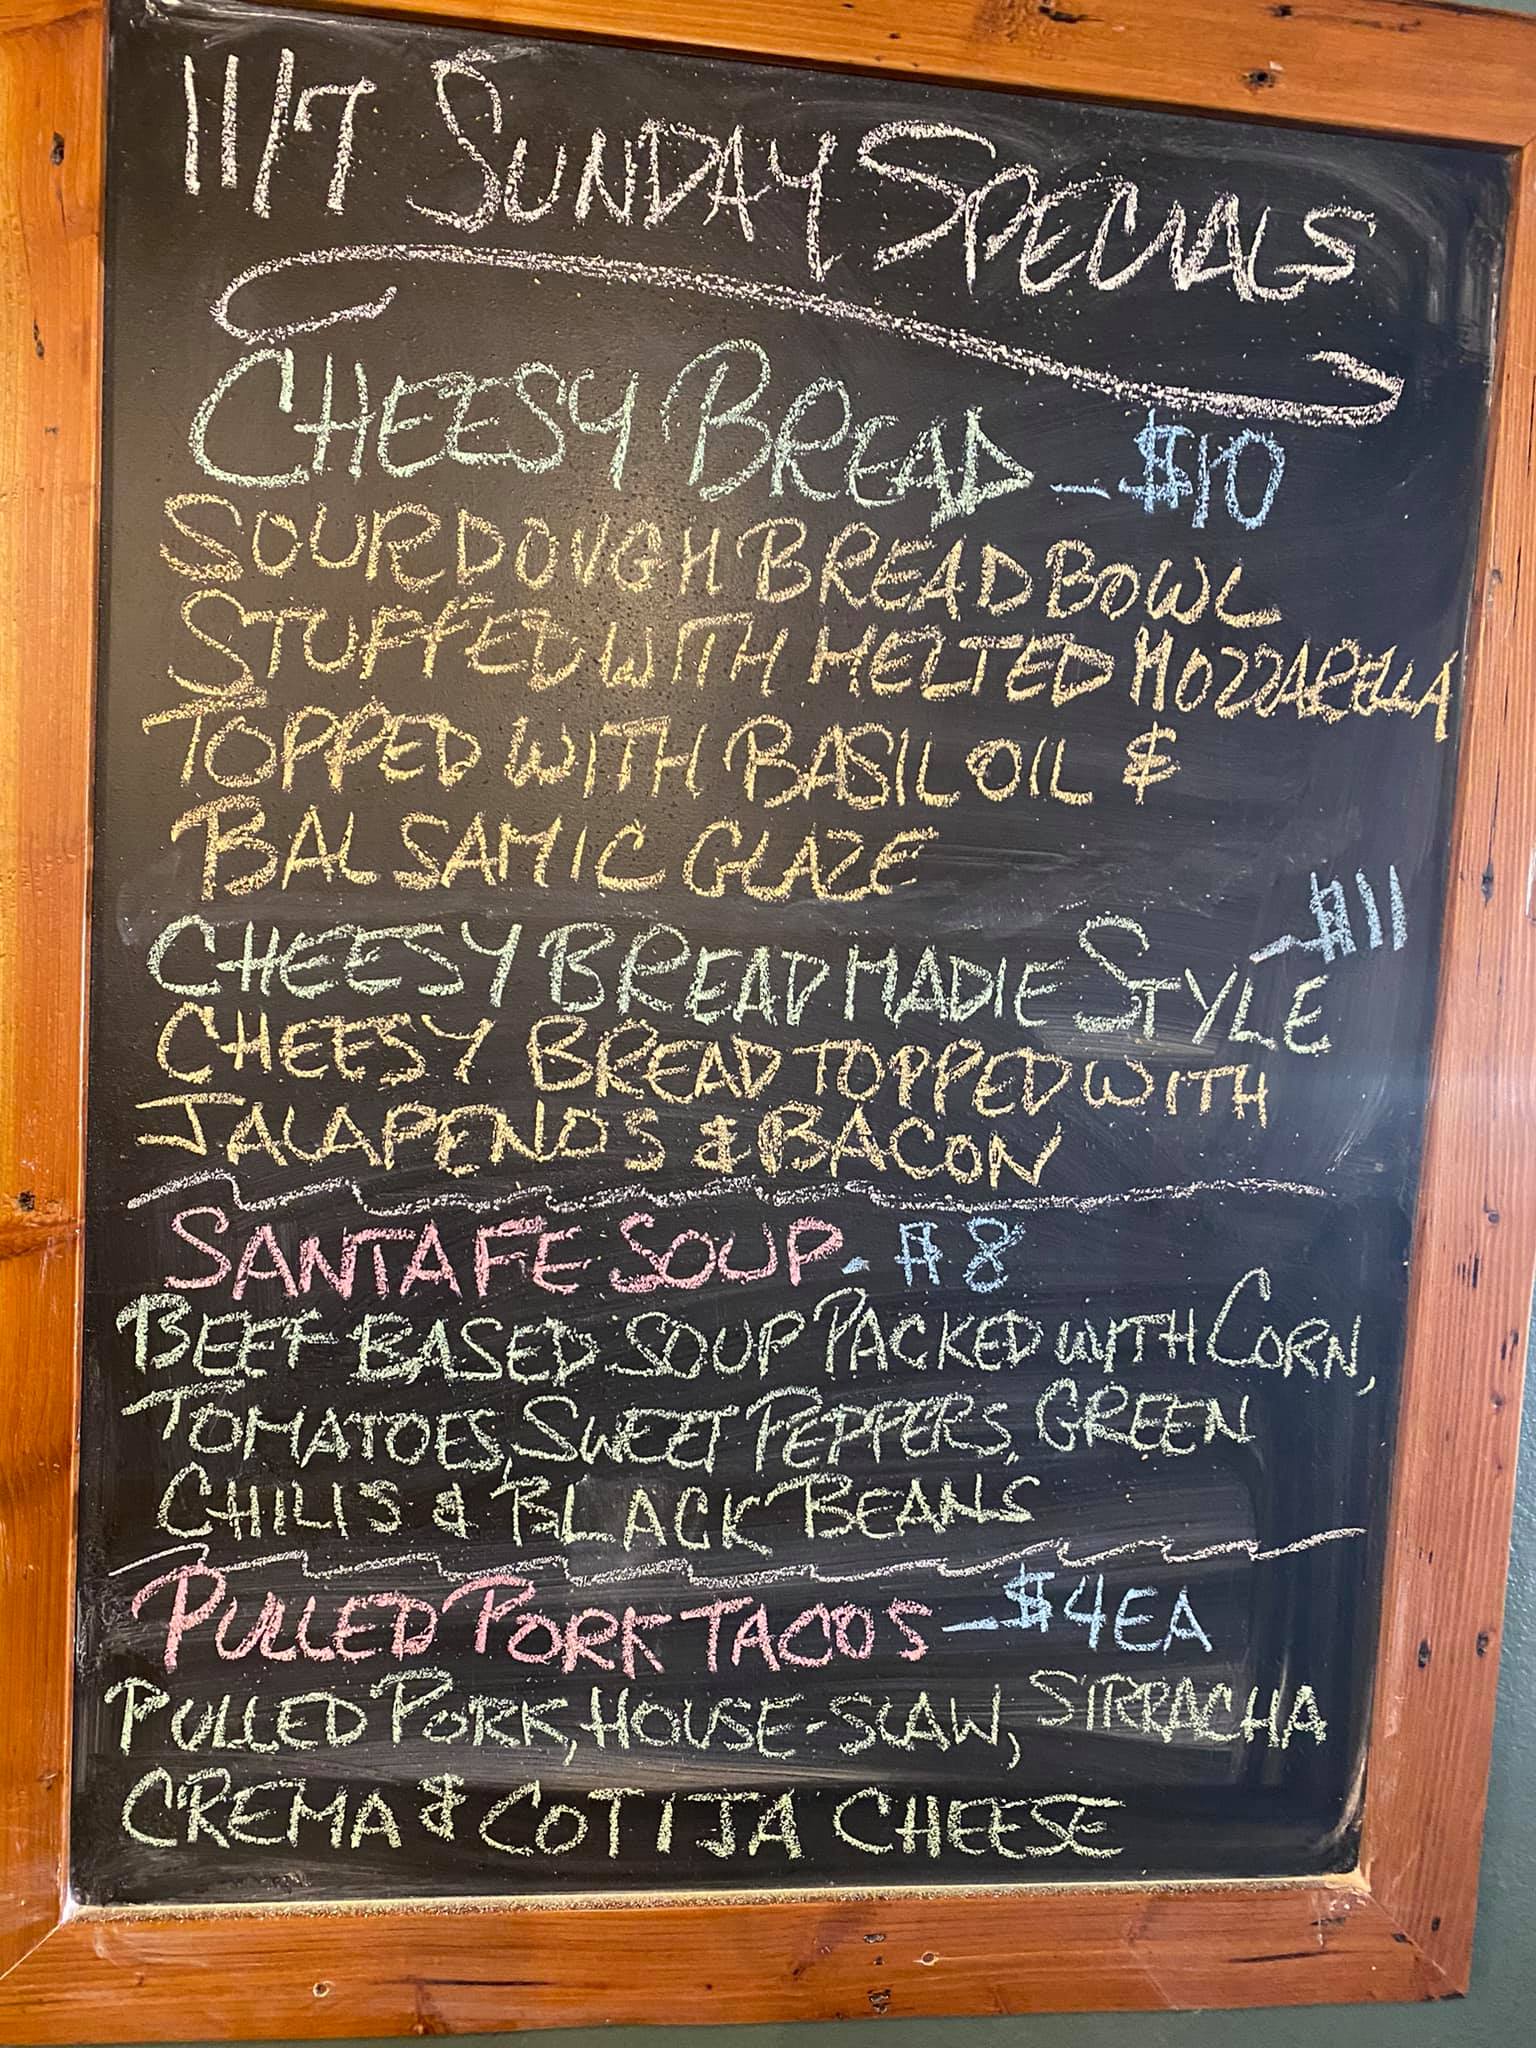 11/7 SUNDAY SPECIALS
CHEESY BREAD - $10
SOURDOUGH BREAD BOWL
STUFFED WITH MELTED MOZZARELLA
TOPPED WITH BASIL OIL &
BALSAMIC GLAZE
CHEESY BREAD MADIE STYLE - $11
CHEESY BREAD TOPPED WITH
JALAPENOS & BACON
SANTA FE SOUP - $8
BEEF BASED SOUP PACKED WITH CORN,
TOMATOES, SWEET PEPPERS, GREEN
CHILIS & BLACK BEANS
PULLED PORK TACOS - $4 EA
PULLED PORK, HOUSE-SLAW, SIRRACHA
CREMA & COTIJA CHEESE